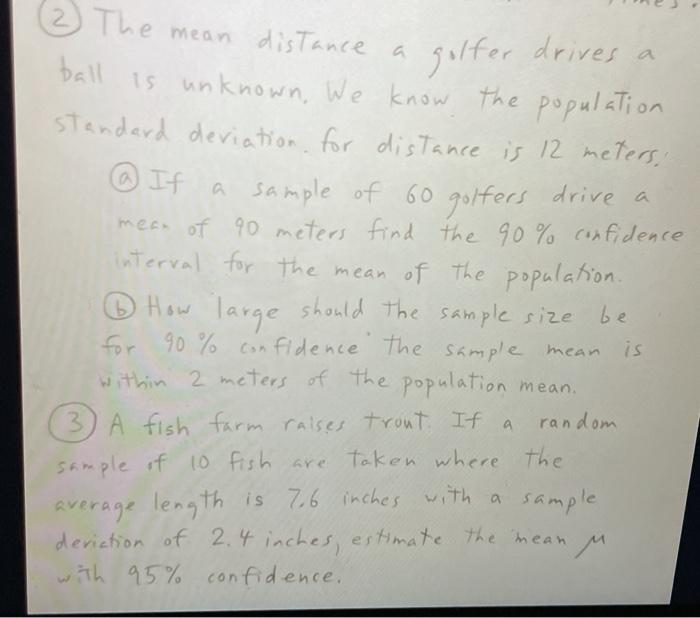 ② The mean distance a golfer drives a
ball is unknown. We know the population
standard deviation. for distance is 12 meters.
ⓐ If a sample of 60 golfers drive a
mean of 90 meters find the 90% confidence
interval for the mean of the population.
ⓑ How large should the sample size be
for 90% confidence the sample mean is
within 2 meters of the population mean.
③ A fish farm raises trout. If a random
sample of 10 fish are taken where the
average length is 7.6 inches with a sample
deviation of 2.4 inches, estimate the mean μ
with 95% confidence.